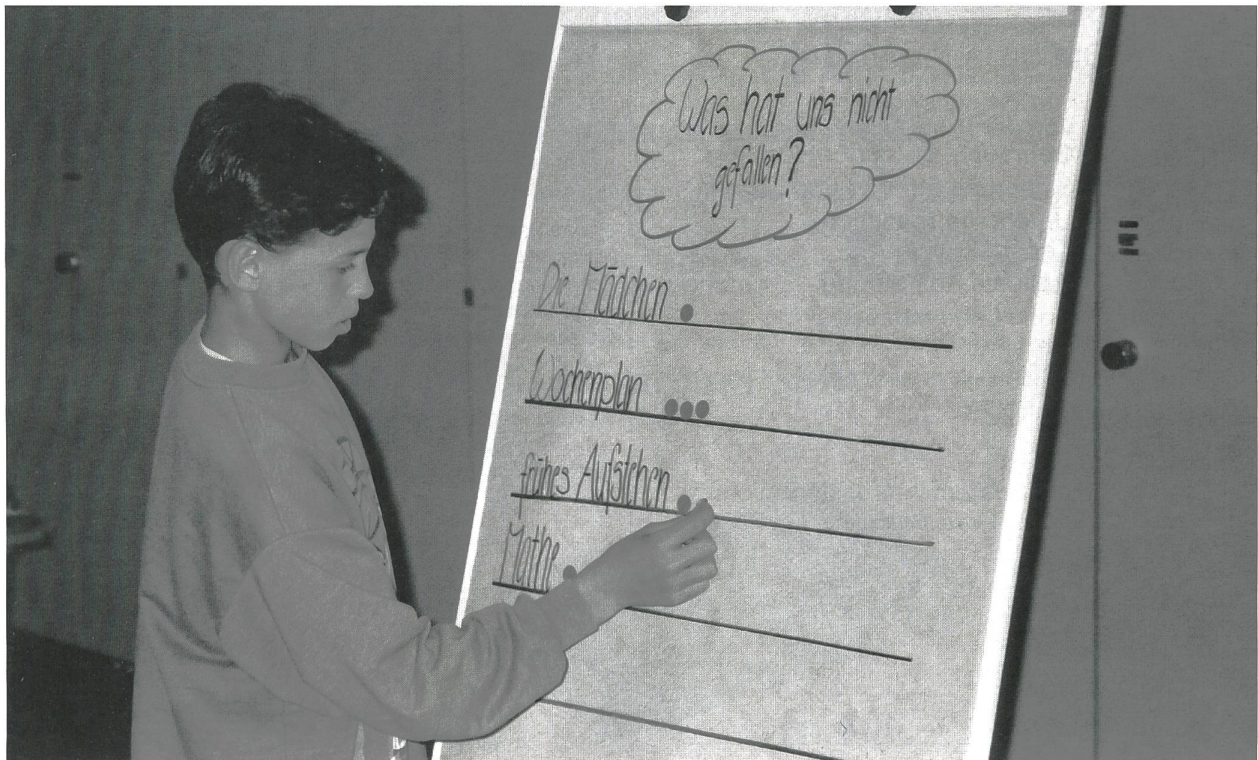 Was hat uns nicht
gefallen?
Die Mädchen
Wochenplan
frühes Aufstehen
Mathe